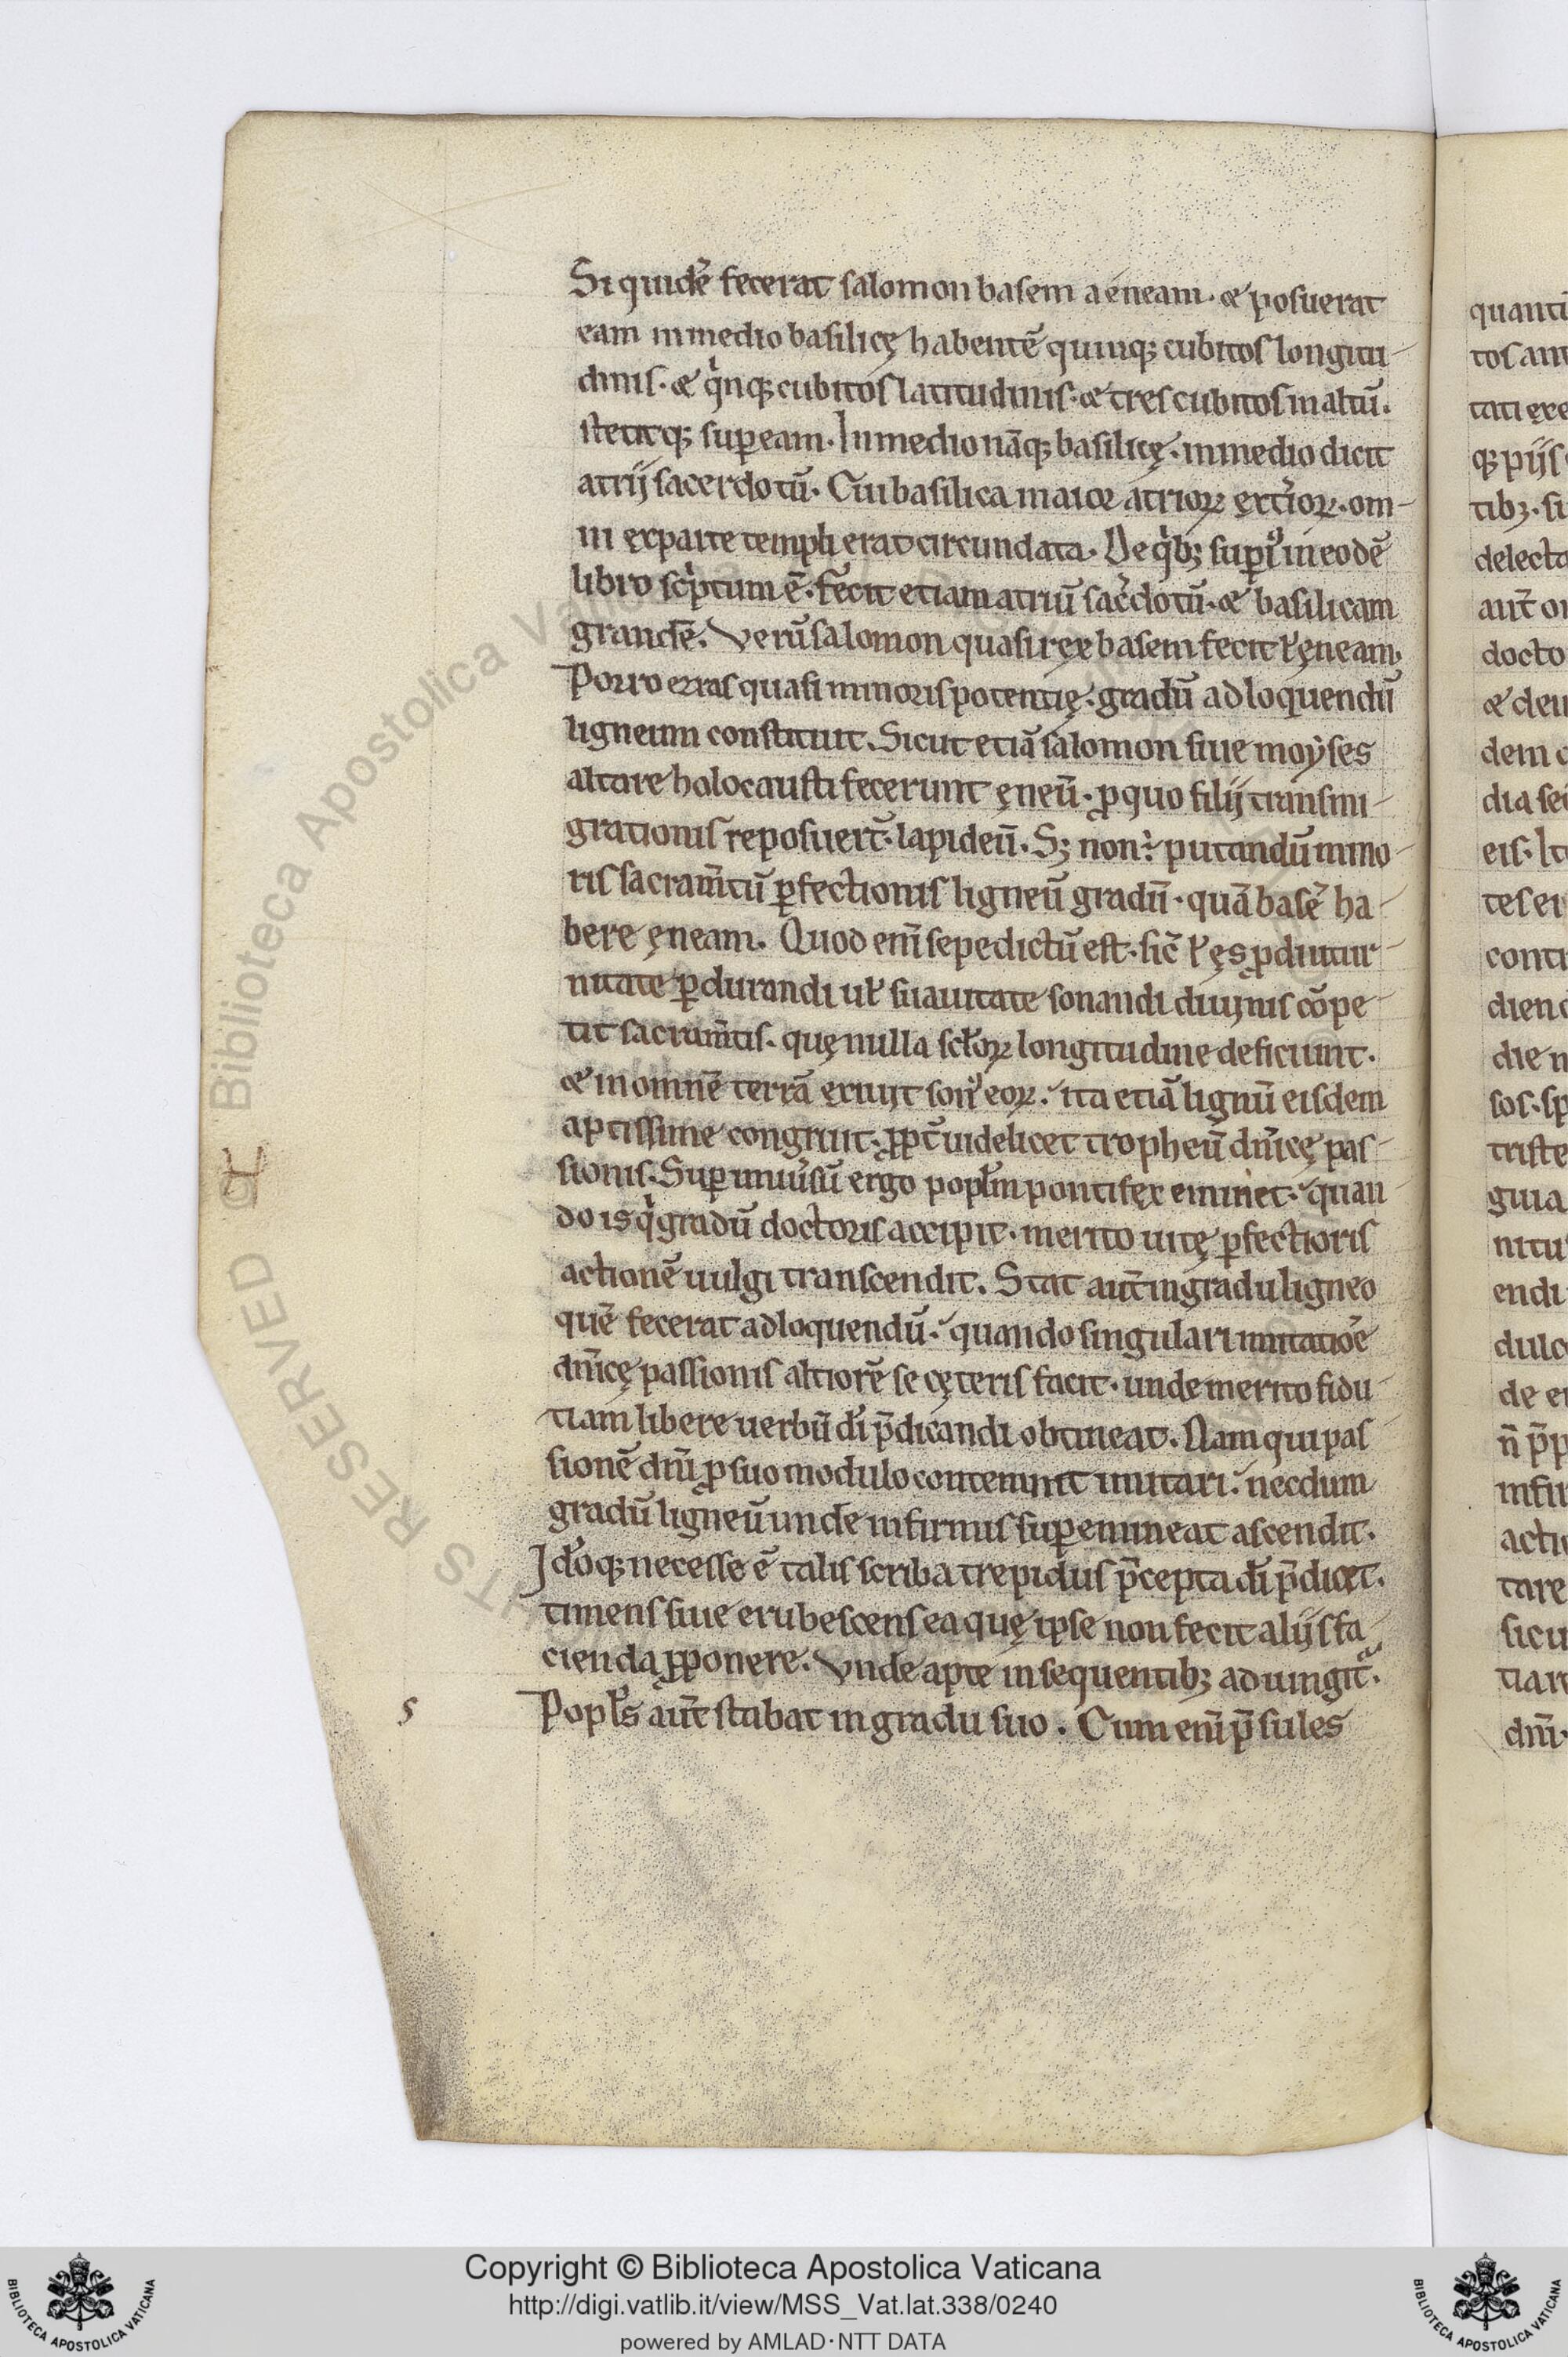 Si quidē fecerat salomon basem aeneam. & posuerat
eam in medio basilicę habentē quinq; cubitos longitu-
dinis. & qͥnq; cubitos latitudinis. & tres cubitos in altū.
stetitq; sup eam. In medio nāq; basilicę. in medio dicit
atrij sacerdotū. Cui basilica maior atrioꝝ extͥioꝝ. om-
ni ex parte templi erat circundata. De qͥb; supiꝰ in eodē
libro scͥptum ē. fecit etiam atriū sac̄dotū. & basilicam
grandē. Verū salomon quasi rex basem fecit ł ęneam;
Porro ezras quasi minoris potentię. gradū ad loquendū
ligneum constituit. Sicut etiā salomon siue moyses
altare holocausti fecerunt ęneū. ꝓ quo filij transmi-
grationis reposuer̄t. lapideū. S; non ÷ putandū mino-
ris sacram̄tū ꝑfectionis ligneū gradū. quā basē ha-
bere ęneam. Quod enī sepe dictū est. sic̄ ł ęs ꝓ diutur-
nitate ꝑdurandi uł suauitate sonandi diuinis cōpe-
tit sacram̄tis. quę nulla scłoꝝ longitudine deficiunt.
& in omnē terrā exiuit sonꝰ eoꝝ. ita etiā lignū eisdem
aptissime congruit. ꝓpt̄ uidelicet tropheū dn̄icę pas-
sionis. Suꝑ uniūsū ergo popłm pontifex eminet. quan-
do is qͥ gradū doctoris accipit. merito uitę ꝑfectioris
actionē uulgi transcendit. Stat aut̄ in gradu ligneo
quē fecerat ad loquendū. quando singulari imitatiōe
dn̄icę passionis altiorē se cęteris facit. unde merito fidu-
tiam libere uerbū dī p̄dicandi obtineat. Nam qui pas-
sionē dn̄i ꝓ suo modulo contemnit imitari. necdum
gradū ligneū unde infirmis suꝑemineat ascendit.
Idōq; necesse ē talis scriba trepidus p̄cepta dī p̄dicet.
timens siue erubescens ea quę ipse non fecit alijs fa-
cienda ꝓponere. Vnde apte in sequentib; adiungit᷑.
Popłs aut̄ stabat in gradu suo. Cum enī p̄sules
s
quanti
tos
q; pijs
tib; si
delecta
aut̄
docto
& deu
dem
dia
eis.
contr
die n
triste
nitu
endi
dulc
de
tare
sicu
dn̄i.
Copyright © Biblioteca Apostolica Vaticana
http://digi.vatlib.it/view/MSS_Vat.lat.338/0240
powered by AMLAD·NTT DATA
BIBLIOTECA APOSTOLICA VATICANA
BIBLIOTECA APOSTOLICA VATICANA